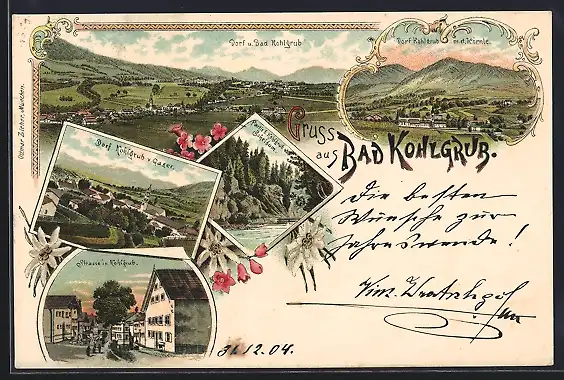 Dorf u. Bad Kohlgrub
Dorf Kohlgrub m. d. Hörnle.
Ottmar Zieher, München.
Gruss
aus BAD KOHLGRUB.
Dorf Kohlgrub v.
Die besten
Wünsche zur
Jahreswende!
Strasse in Kohlgrub.
31.12.04.